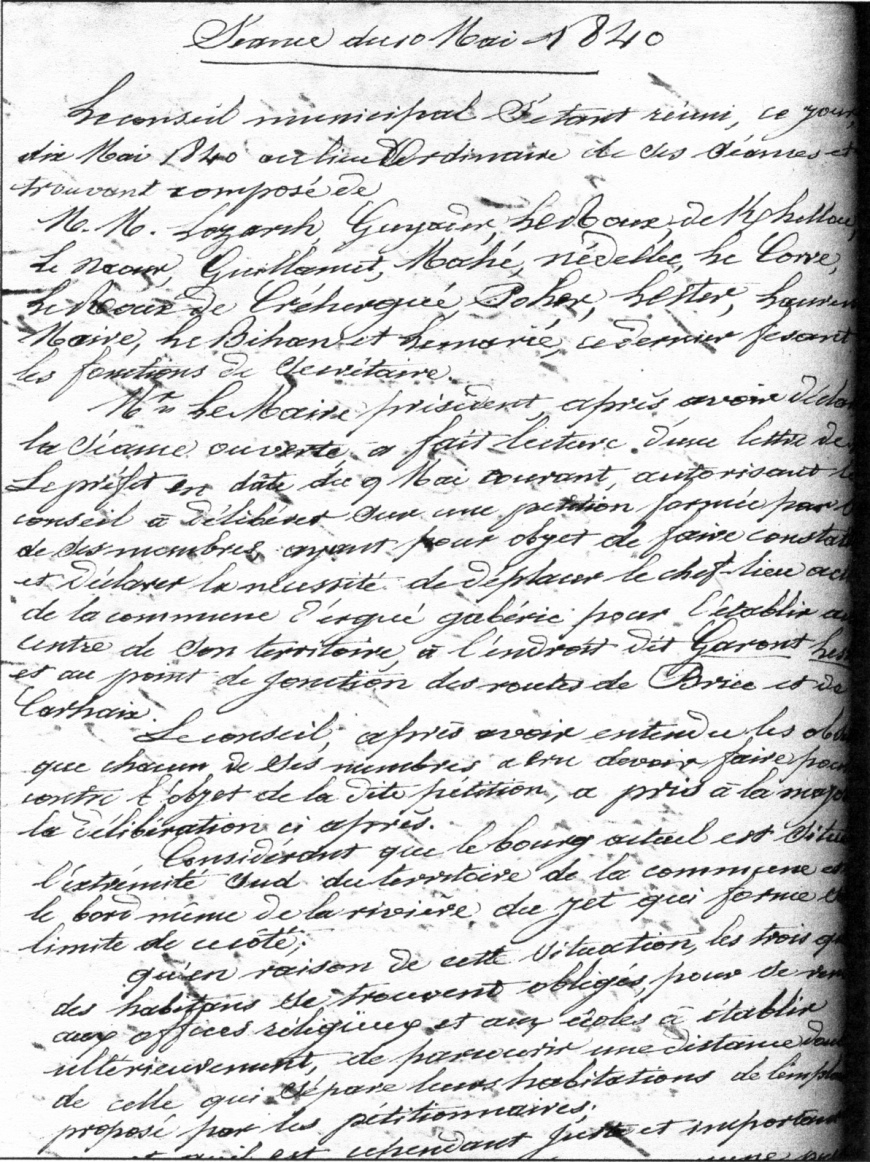 Séance du 10 Mai 1840
Le conseil municipal S'étant réuni, ce jour,
dix Mai 1840 au lieu Ordinaire de ses séances et
trouvant composé de
M. M. Lozarch, Guyader, Le Roux, de
Le Naour, Guillamet, Mahé, nédellec, Le Corre,
Le Roux de Créhergué, Poher, Lester, Laurent
Maire, Le Bihan et Lemarié, ce dernier fesant
les fonctions de Secrétaire.
Mr Le Maire président, après avoir
la séance ouverte, a fait lecture d'une lettre de
Le préfet en date du 9 Mai courant, autorisant le
conseil à délibérer sur une pétition formée par
de ses membres ayant pour objet de faire
et déclarer la nécessité de déplacer le chef-lieu
de la commune d'ergué gabéric pour l'établir au
centre de son territoire, à l'endroit dit Garont
et au point de jonction des routes de Briec et de
Carhaix.
Le conseil, après avoir entendu les
que chacun de ses membres a cru devoir faire pour
contre l'objet de la dite pétition, a pris à la
la délibération ci après.
Considérant que le bourg actuel est
l'extrémité Sud du territoire de la commune
le bord même de la rivière du jet qui forme
limite de ce côté;
qu'en raison de cette situation, les trois
des habitans se trouvent obligés, pour se
aux offices réligieux et aux écoles à établir
ultérieurement, de parcourir une distance
de celle qui sépare leurs habitations de
proposé par les pétitionnaires;
est cependant juste et